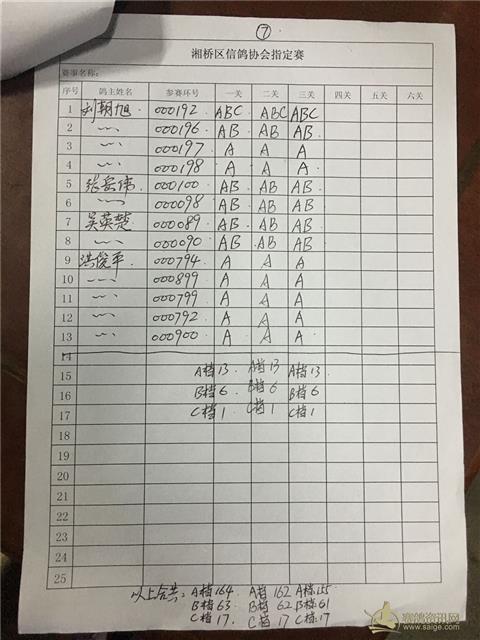 ⑦
湘桥区信鸽协会指定赛
赛事名称:
序号 鸽主姓名 参赛环号 一关 二关 三关 四关 五关 六关
1 刘朝旭 000192 ABC ABC ABC
2 〃 000196 AB AB AB
3 〃 000197 A A A
4 〃 000198 A A A
5 张岳伟 000100 AB AB AB
6 〃 000098 AB AB AB
7 吴英楚 000089 AB AB AB
8 〃 000090 AB AB AB
9 洪俊平 000794 A A A
10 〃 000899 A A A
11 〃 000799 A A A
12 〃 000792 A A A
13 〃 000900 A A A
14
15 A档13 A档13 A档13
16 B档6 B档6 B档6
17 C档1 C档1 C档1
18
19
20
21
22
23
24
25
以上合共: A档164 A档162 A档155
B档63 B档62 B档61
C档17 C档17 C档17
www.saige.com